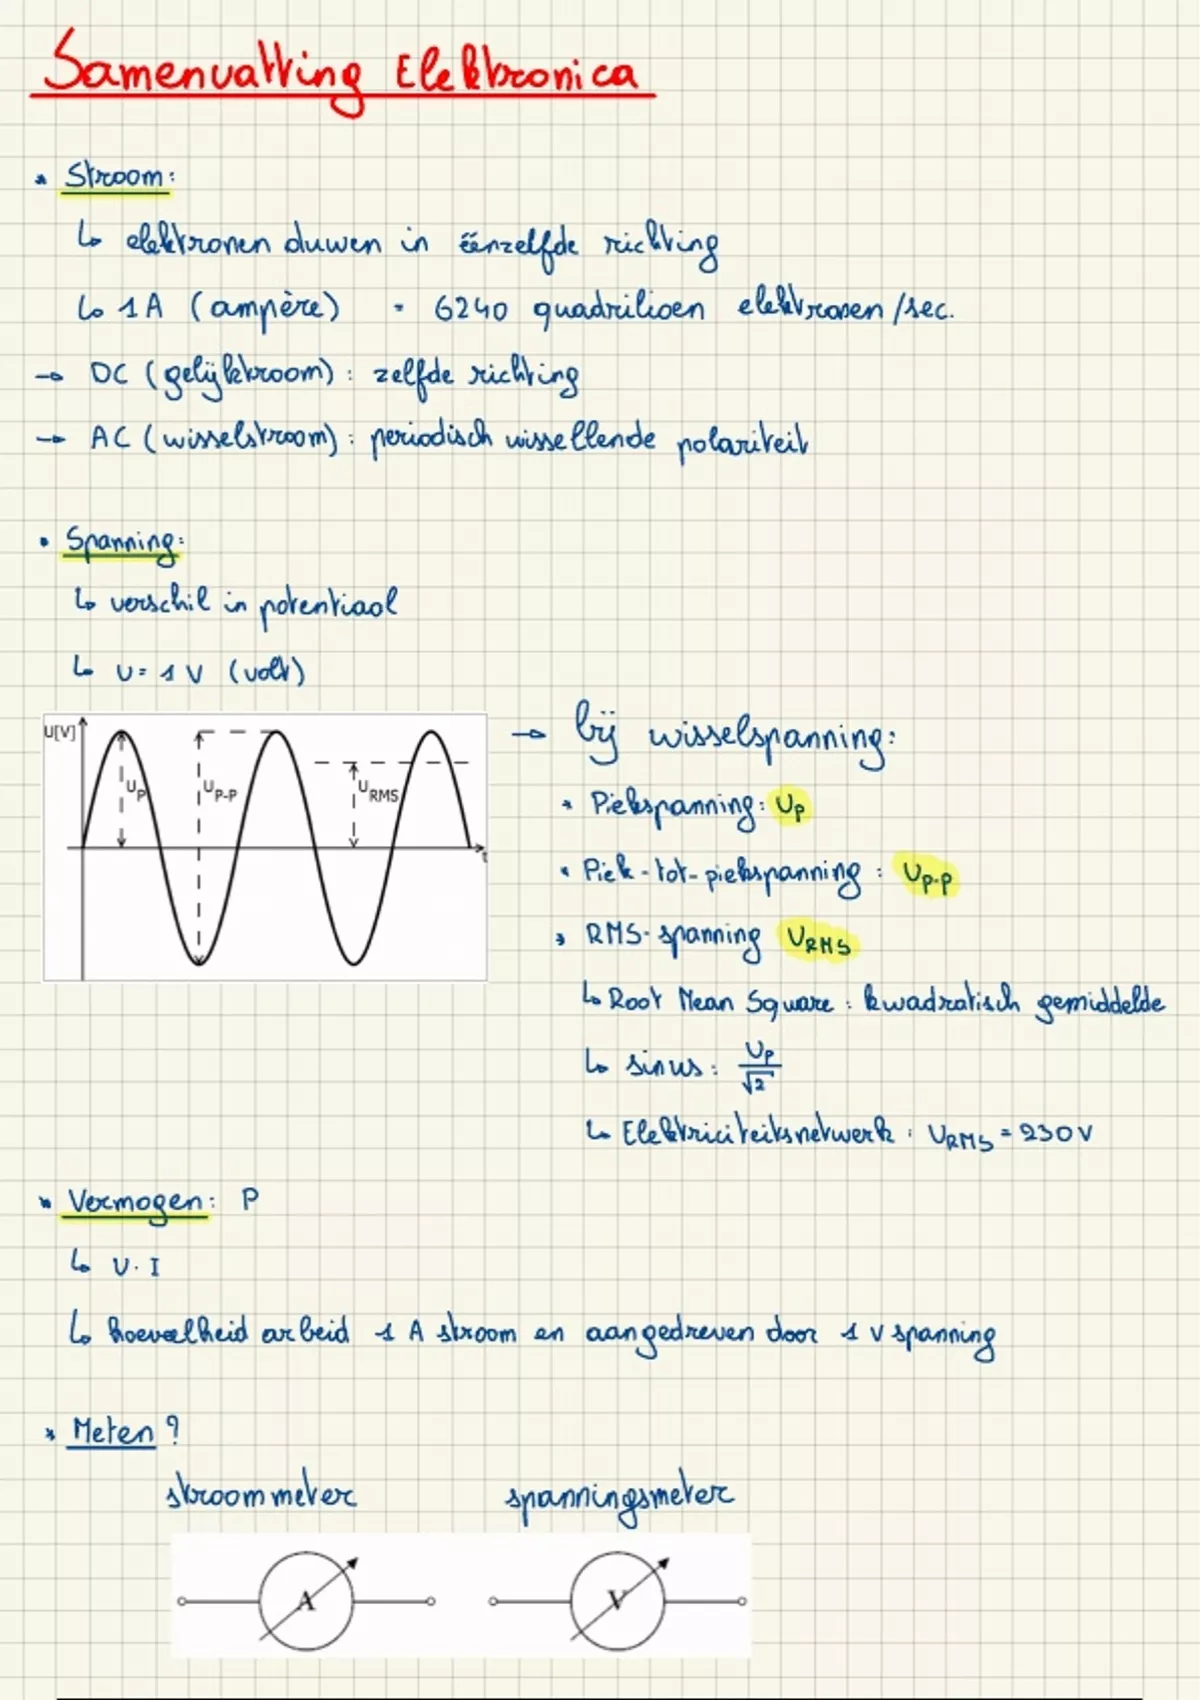 Samenvatting Elektronica
• Stroom:
↳ elektronen duwen in éénzelfde richting
↳ 1A (ampère) = 6240 quadrilioen elektronen/sec.
→ DC (gelijkstroom): zelfde richting
→ AC (wisselstroom): periodisch wissellende polariteit
• Spanning:
↳ verschil in potentiaal
↳ U = 1 V (volt)
U[V]
UP
UP-P
URMS
t
→ bij wisselspanning:
• Piekspanning: Up
• Piek-tot-piekspanning: Up-p
• RMS-spanning URMS
↳ Root Mean Square: kwadratisch gemiddelde
↳ sinus: Up/√2
↳ Elektriciteitsnetwerk: URMS = 230V
• Vermogen: P
↳ U·I
↳ hoeveelheid arbeid 1 A stroom en aangedreven door 1 V spanning
• Meten?
stroommeter spanningsmeter
A V